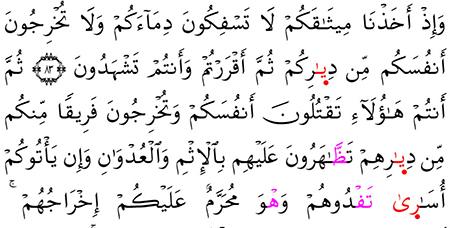 وَإِذْ أَخَذْنَا مِيثَـٰقَكُمْ لَا تَسْفِكُونَ دِمَآءَكُمْ وَلَا تُخْرِجُونَ
أَنفُسَكُم مِّن دِيـٰرِكُمْ ثُمَّ أَقْرَرْتُمْ وَأَنتُمْ تَشْهَدُونَ ٨٣ ثُمَّ
أَنتُمْ هَـٰٓؤُلَآءِ تَقْتُلُونَ أَنفُسَكُمْ وَتُخْرِجُونَ فَرِيقًا مِّنكُم
مِّن دِيـٰرِهِمْ تَظَّـٰهَرُونَ عَلَيْهِم بِٱلْإِثْمِ وَٱلْعُدْوَٰنِ وَإِن يَأْتُوكُمْ
أُسَـٰرىٰ تَفْدُوهُمْ وَهْوَ مُحَرَّمٌ عَلَيْكُمْ إِخْرَاجُهُمْ ۚ